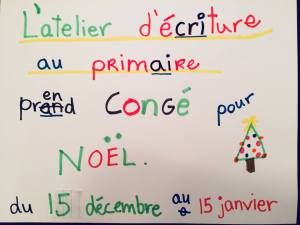 L'atelier d'écriture
au primaire
prend Congé pour
NOËL.
du 15 décembre au 15 janvier